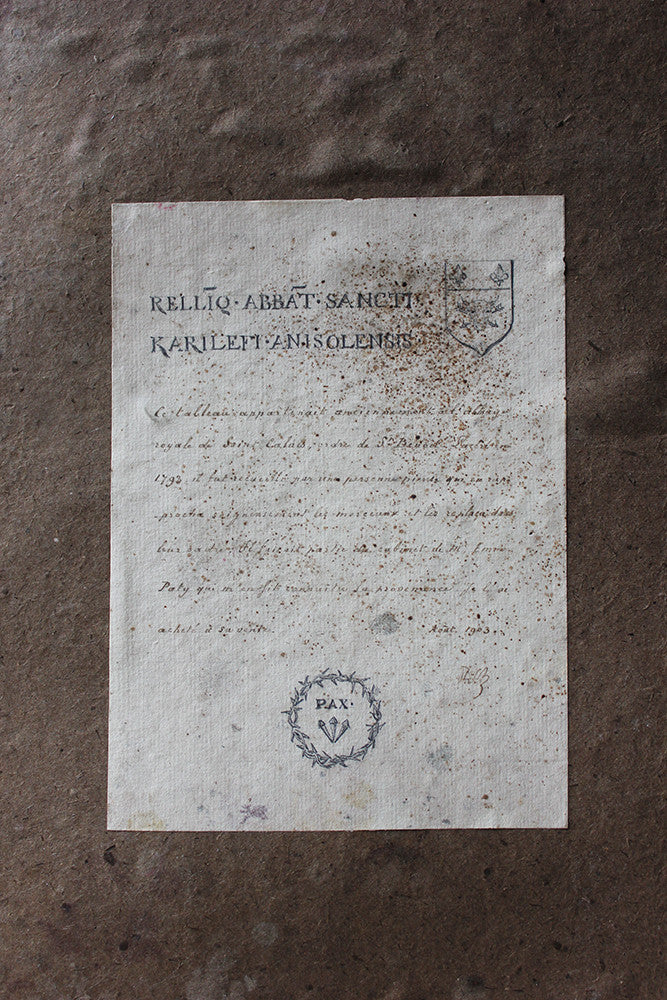 RELLĪQ · ABBAT̄ · SANCTI
KARILEFI · ANISOLENSIS
Ce tableau appartenait anciennement à l'abbaye
royale de Saint Calais, ordre de St Benoit
1793, il fut recueilli par une personne pieuse qui en
soigneusement les morceaux et les replaça dans
leur cadre. Il faisait partie du cabinet de Mr
Paty qui m'en fit connaître la provenance. Je l'ai
acheté à sa vente. Août 1903.
PAX ·